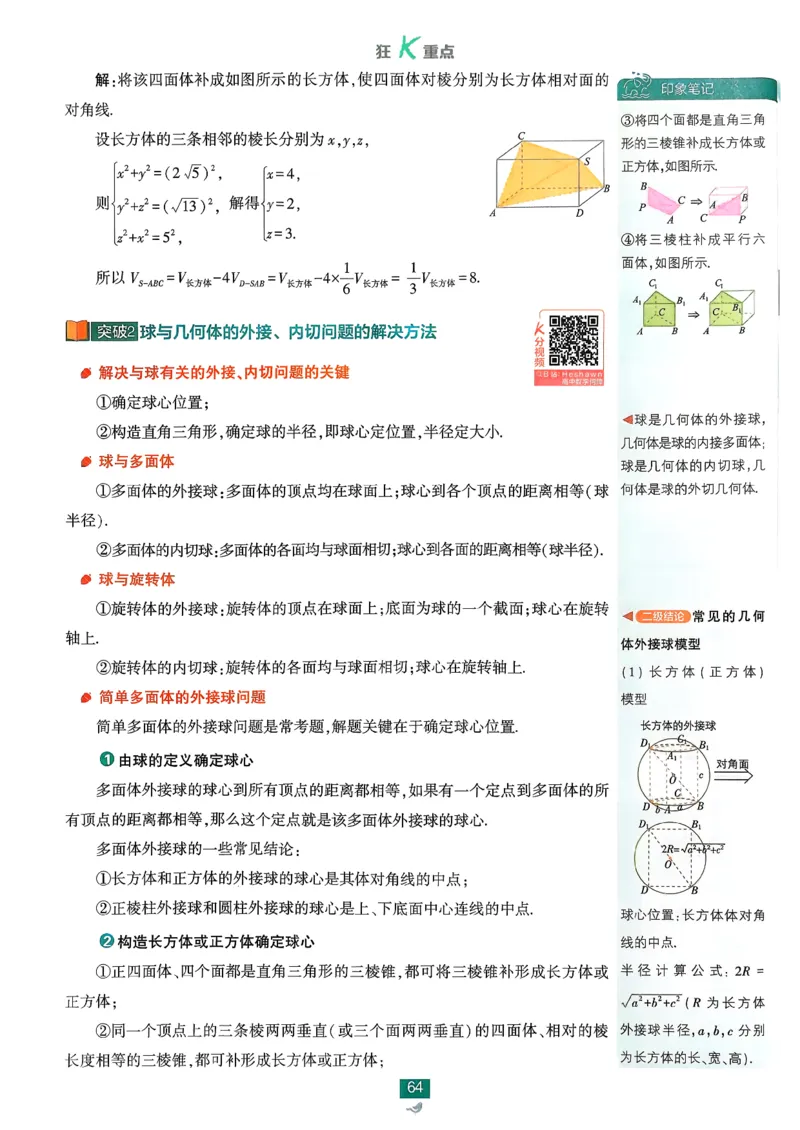 狂K重点
解:将该四面体补成如图所示的长方体,使四面体对棱分别为长方体相对面的
对角线.
设长方体的三条相邻的棱长分别为 x,y,z,
则{x²+y²=(2√5)², y²+z²=(√13)², z²+x²=5², 解得{x=4, y=2, z=3.
C
S
B
A
D
所以 V_{S-ABC}=V_{长方体}-4V_{D-SAB}=V_{长方体}-4×1/6 V_{长方体}=1/3 V_{长方体}=8.
突破2 球与几何体的外接、内切问题的解决方法
K分视频
解决与球有关的外接、内切问题的关键
①确定球心位置;
②构造直角三角形,确定球的半径,即球心定位置,半径定大小.
球与多面体
①多面体的外接球:多面体的顶点均在球面上;球心到各个顶点的距离相等(球
半径).
②多面体的内切球:多面体的各面均与球面相切;球心到各面的距离相等(球半径).
球与旋转体
①旋转体的外接球:旋转体的顶点在球面上;底面为球的一个截面;球心在旋转
轴上.
②旋转体的内切球:旋转体的各面均与球面相切;球心在旋转轴上.
简单多面体的外接球问题
简单多面体的外接球问题是常考题,解题关键在于确定球心位置.
❶由球的定义确定球心
多面体外接球的球心到所有顶点的距离都相等,如果有一个定点到多面体的所
有顶点的距离都相等,那么这个定点就是该多面体外接球的球心.
多面体外接球的一些常见结论:
①长方体和正方体的外接球的球心是其体对角线的中点;
②正棱柱外接球和圆柱外接球的球心是上、下底面中心连线的中点.
❷构造长方体或正方体确定球心
①正四面体、四个面都是直角三角形的三棱锥,都可将三棱锥补形成长方体或
正方体;
②同一个顶点上的三条棱两两垂直(或三个面两两垂直)的四面体、相对的棱
长度相等的三棱锥,都可补形成长方体或正方体;
64
印象笔记
③将四个面都是直角三角
形的三棱锥补成长方体或
正方体,如图所示.
B
P C ⇒ A B
A C P
④将三棱柱补成平行六
面体,如图所示.
C₁ C₁
A₁ B₁ A₁ B₁
C ⇒ C
A B A B
球是几何体的外接球,
几何体是球的内接多面体;
球是几何体的内切球,几
何体是球的外切几何体.
二级结论 常见的几何
体外接球模型
(1)长方体(正方体)
模型
长方体的外接球
D₁ C₁ B₁
A₁ 对角面
O c
C
D b A a B
D₁ B₁
2R=√a²+b²+c²
O
D B
球心位置:长方体体对角
线的中点.
半径计算公式:2R=
√a²+b²+c²(R 为长方体
外接球半径,a,b,c 分别
为长方体的长、宽、高).